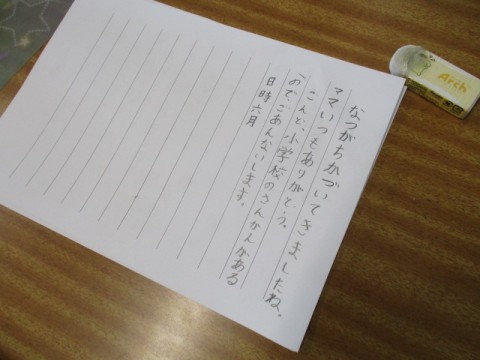 なつがちかづいてきましたね。
ママいつもありがとう。
こんど、小学校のさんかんがある
ので、ごあんないします。
日時六月
Arch